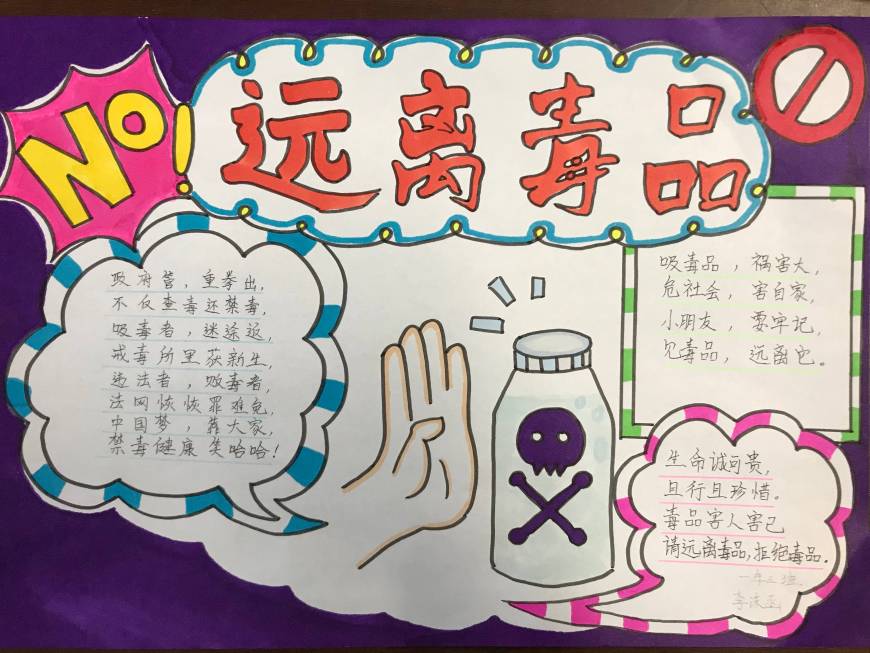 NO!
远离毒品
政府管，重拳出，
不仅查毒还禁毒，
吸毒者，迷途返，
戒毒所里获新生，
违法者，贩毒者，
法网恢恢罪难免，
中国梦，靠大家，
禁毒健康笑哈哈！
吸毒品，祸害大，
危社会，害自家，
小朋友，要牢记，
见毒品，远离它。
生命诚可贵，
且行且珍惜。
毒品害人害己
请远离毒品，拒绝毒品．
一年三班